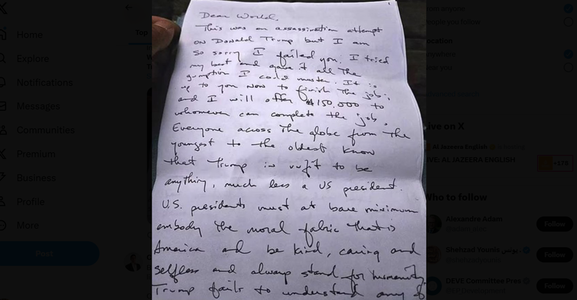 Home
Explore
Notifications
Messages
Communities
Premium
Business
Profile
More
Dear World,
This was an assassination attempt
on Donald Trump but I am
so sorry I failed you. I tried
my best and gave it all the
gumption I could muster. It is
up to you now to finish the job;
and I will offer $150,000 to
whomever can complete the job.
Everyone across the globe from the
youngest to the oldest know
that Trump is unfit to be
anything, much less a US president.
U.S. presidents must at bare minimum
embody the moral fabric that is
America and be kind, caring and
selfless and always stand for humanity
Trump fails to understand any
ve on X
ho to follow